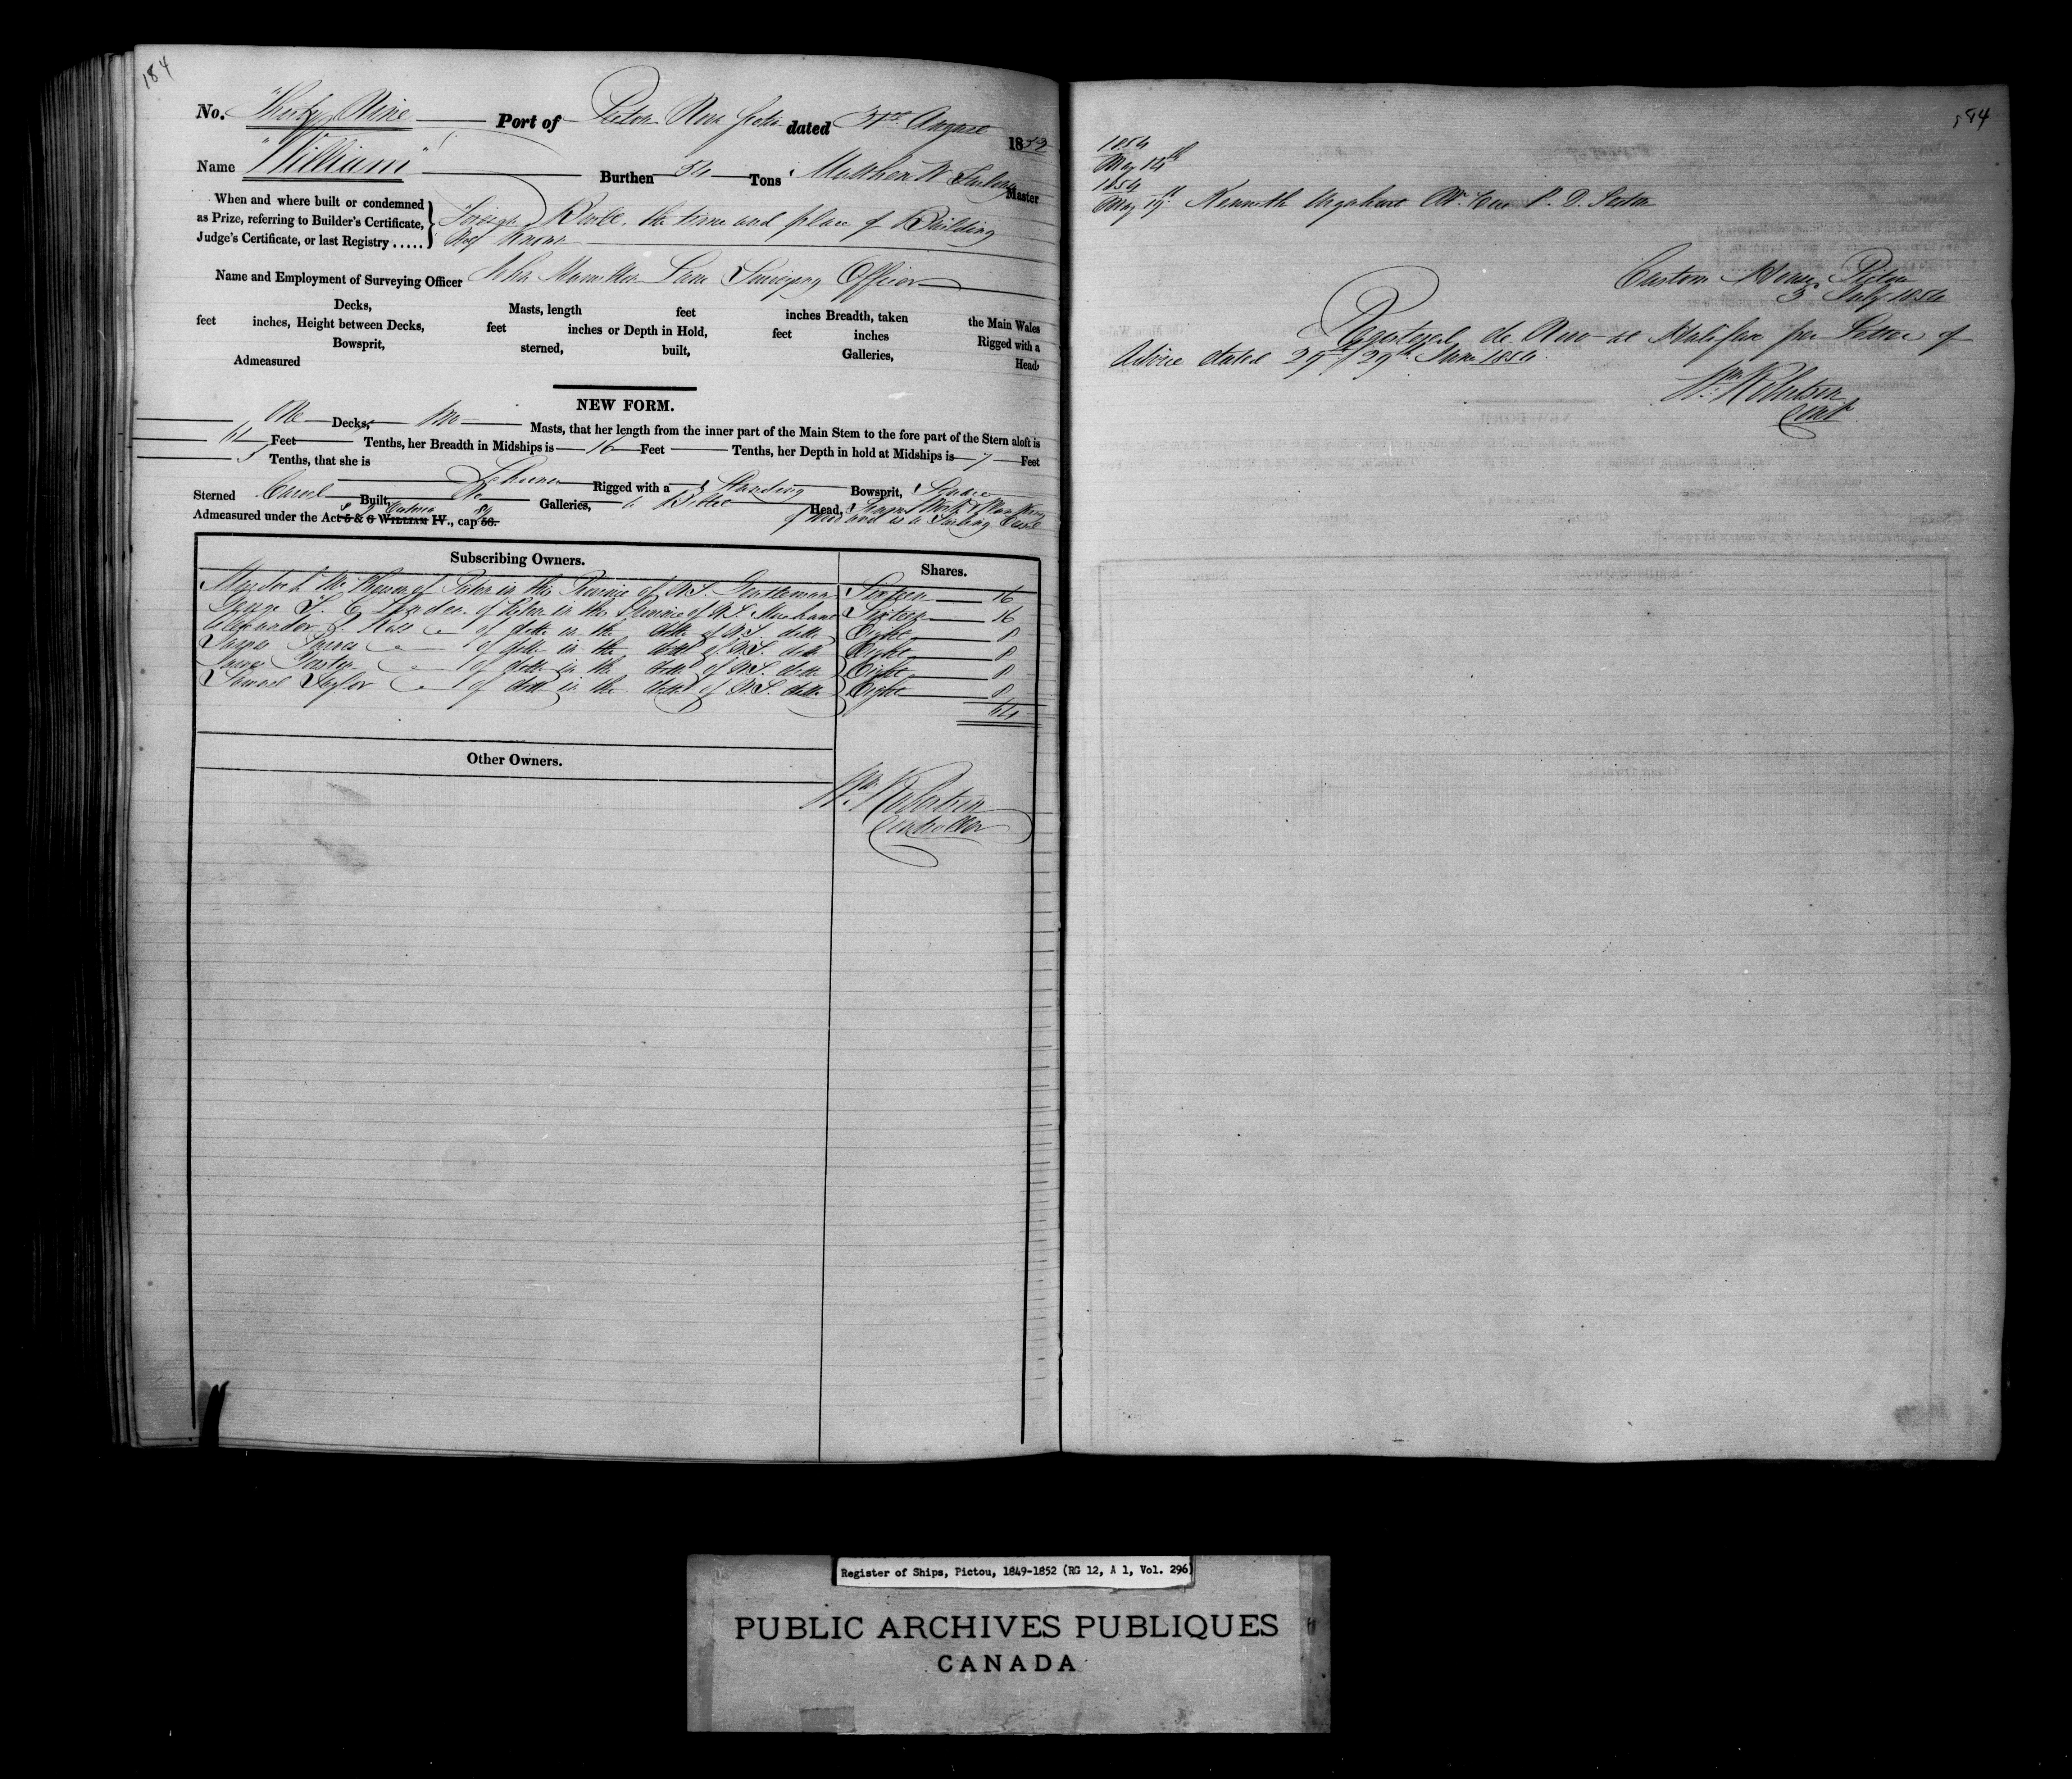 184
No. Thirty Nine Port of Pictou Nova Scotia dated 31st August 1852
Name "William" Burthen 54 Tons Matthew W Master
When and where built or condemned
as Prize, referring to Builder's Certificate,
Judge's Certificate, or last Registry .....
Foreign Built, the time and place of Building
Not Known
Name and Employment of Surveying Officer John Hamilton Lane Surveying Officer
Decks, Masts, length feet inches Breadth, taken the Main Wales
feet inches, Height between Decks, feet inches or Depth in Hold, feet inches Rigged with a
Bowsprit, sterned, built, Galleries, Head,
Admeasured
NEW FORM.
One Decks, two Masts, that her length from the inner part of the Main Stem to the fore part of the Stern aloft is
Feet Tenths, her Breadth in Midships is 16 Feet Tenths, her Depth in hold at Midships is 7 Feet
5 Tenths, that she is Schooner Rigged with a Standing Bowsprit, Square
Sterned Carvel Built, No Galleries, a Billet Head, Frame Work & Planking
of Wood and is a Sailing Vessel
Admeasured under the Act 5 & 6 WILLIAM IV., cap 56. 8 & 9 Victoria 89
Subscribing Owners. Shares.
Murdoch of Pictou in the Province of N.S. Gentleman Sixteen 16
George of Pictou in the Province of N.S. Merchant Sixteen 16
Alexander P Ross of ditto in the ditto of N.S. ditto Eight 8
James of ditto in the ditto of N.S. ditto Eight 8
James of ditto in the ditto of N.S. ditto Eight 8
Samuel Taylor of ditto in the ditto of N.S. ditto Eight 8
64
Other Owners.
Wm. Robertson
Controller
184
1854
May 12th
1854
May 19th Kenneth Urquhart
Custom House Pictou
3 July 1854
Registered de Novo at Halifax per Letter of
Advice dated 29th/29th June 1854
Wm. Robertson
Contr
Register of Ships, Pictou, 1849-1852 (RG 12, A 1, Vol. 296)
PUBLIC ARCHIVES PUBLIQUES
CANADA